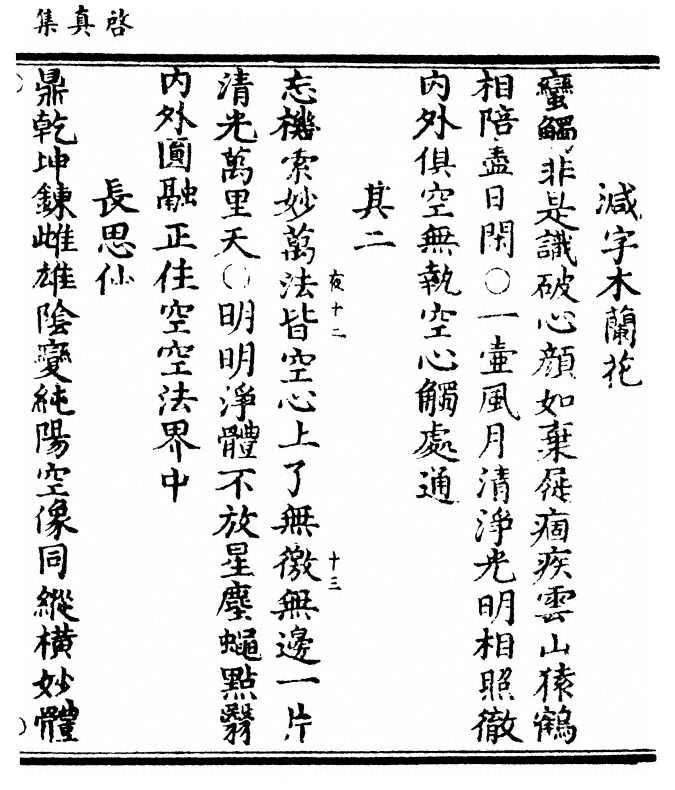 啓真集
減字木蘭花
蠻觸非是識破心顔如棄屣痼疾雲山猿鶴
相陪盡日閑○一壷風月清淨光明相照徹
内外俱空無執空心觸處通
其二
夜十二
十三
忘機索妙萬法皆空心上了無徼無邊一片
清光萬里天○明明淨體不放星塵蠅點翳
内外圓融正住空空法界中
長思仙
鼎乾坤鍊雌雄陰變純陽空像同縱橫妙體